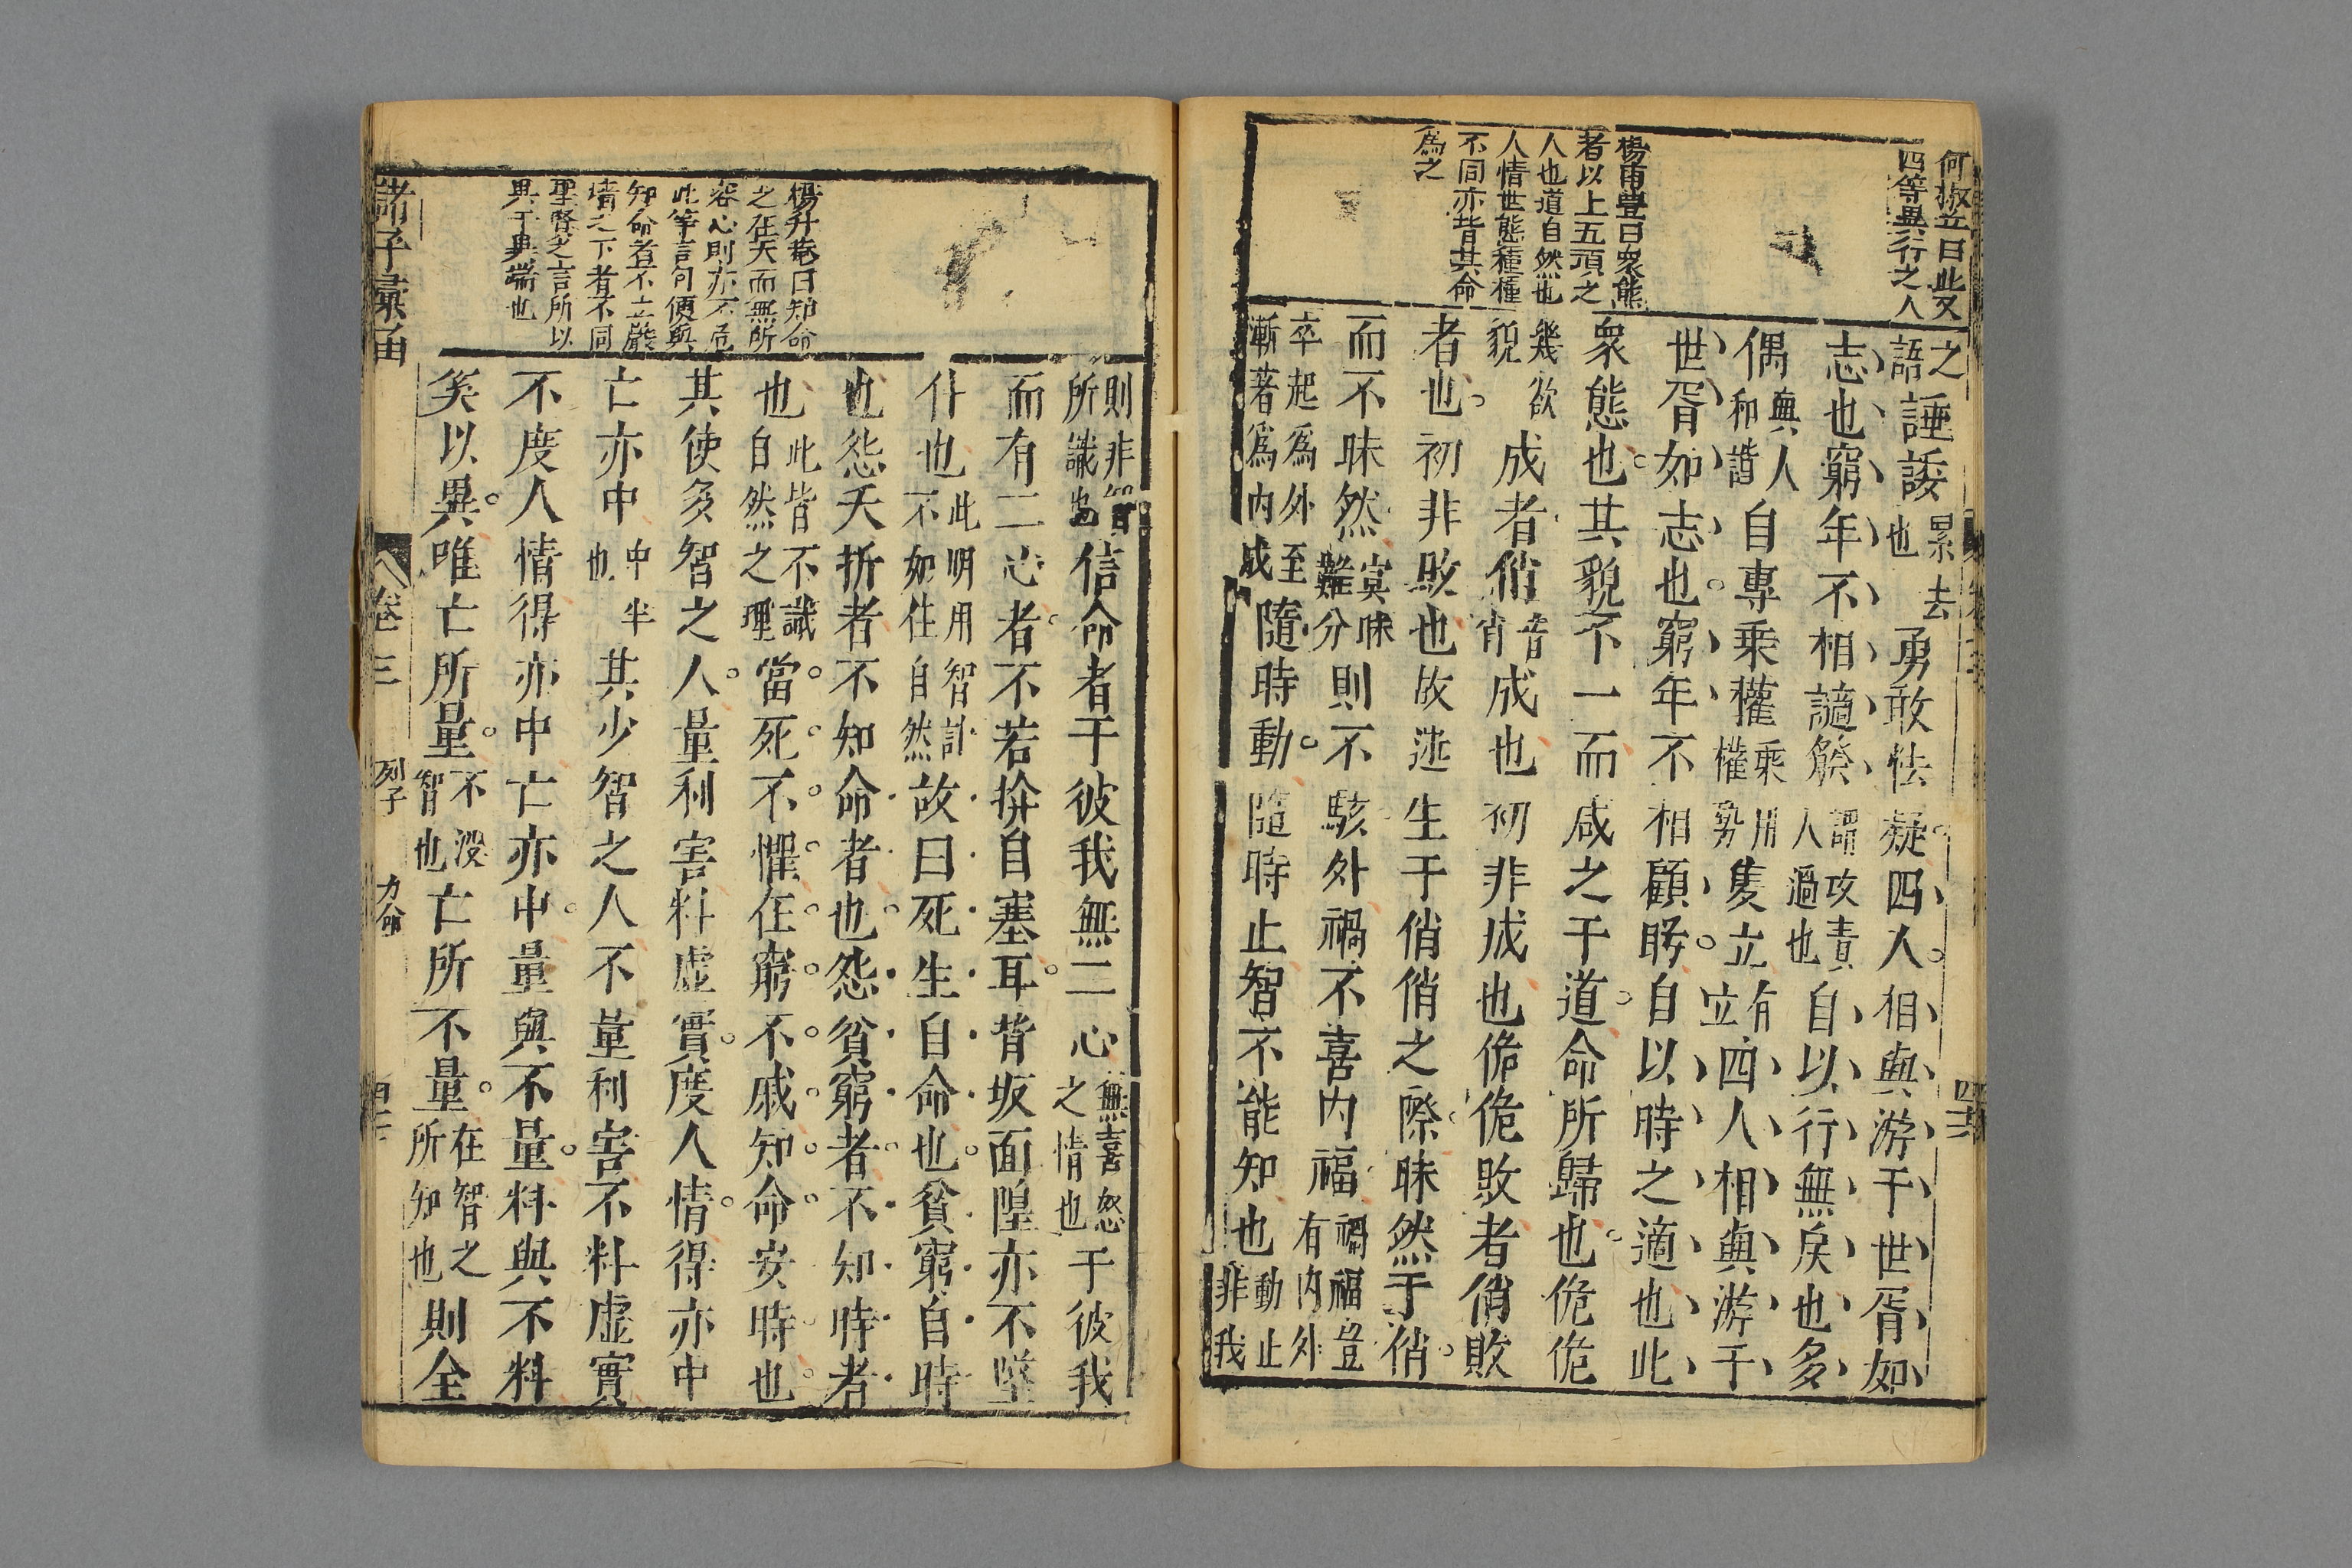 何椒丘曰此又
四等異行之人
楊南豐曰衆態
者以上五項之
人也道自然也
人情世態種種
不同亦皆其命
爲之
之語諈諉累去也勇敢怯疑四人相與游于世胥如
志也窮年不相讁發謂攻責人過也自以行無戾也多
偶與人和諧自專乘權乘用權勢隻立有立四人相與游于
世胥如志也窮年不相顧眄自以時之適也此
衆態也其貌不一而咸之于道命所歸也佹佹
幾欲貌成者俏音肖成也初非成也佹佹敗者俏敗
者也初非敗也故迷生于俏俏之際昧然于俏
而不昧然冥昧難分則不駭外禍不喜内福禍福豈有内外
卒起爲外至漸著爲内成隨時動隨時止智不能知也動止非我
楊升菴曰知命
之在天而無所
容心則亦不危
此等言句便與
知命者不立巖
墻之下者不同
聖賢之言所以
異于異端也
則非智所識也信命者于彼我無二心無喜怒之情也于彼我
而有二心者不若揜自塞耳背坂面隍亦不墜
仆也此明用智計不如任自然故曰死生自命也貧窮自時
也怨夭折者不知命者也怨貧窮者不知時者
也此皆不識自然之理當死不懼在窮不戚知命安時也
其使多智之人量利害料虚實度人情得亦中
亡亦中中半也其少智之人不量利害不料虚實
不度人情得亦中亡亦中量與不量料與不料
奚以異唯亡所量不没智也亡所不量在智之所知也則全
諸子彙函
卷三
列子
力命